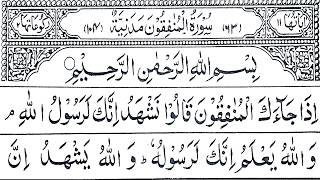 اٰيَاتُهَا ١١ (٦٣) سُوْرَةُ الْمُنٰفِقُوْنَ مَدَنِيَّةٌ (١٠٤) رُكُوْعَاتُهَا ٢
بِسْمِ اللّٰهِ الرَّحْمٰنِ الرَّحِيْمِ
اِذَا جَآءَكَ الْمُنٰفِقُوْنَ قَالُوْا نَشْهَدُ اِنَّكَ لَرَسُوْلُ اللّٰهِ ۘ
وَاللّٰهُ يَعْلَمُ اِنَّكَ لَرَسُوْلُهٗ ؕ وَاللّٰهُ يَشْهَدُ اِنَّ